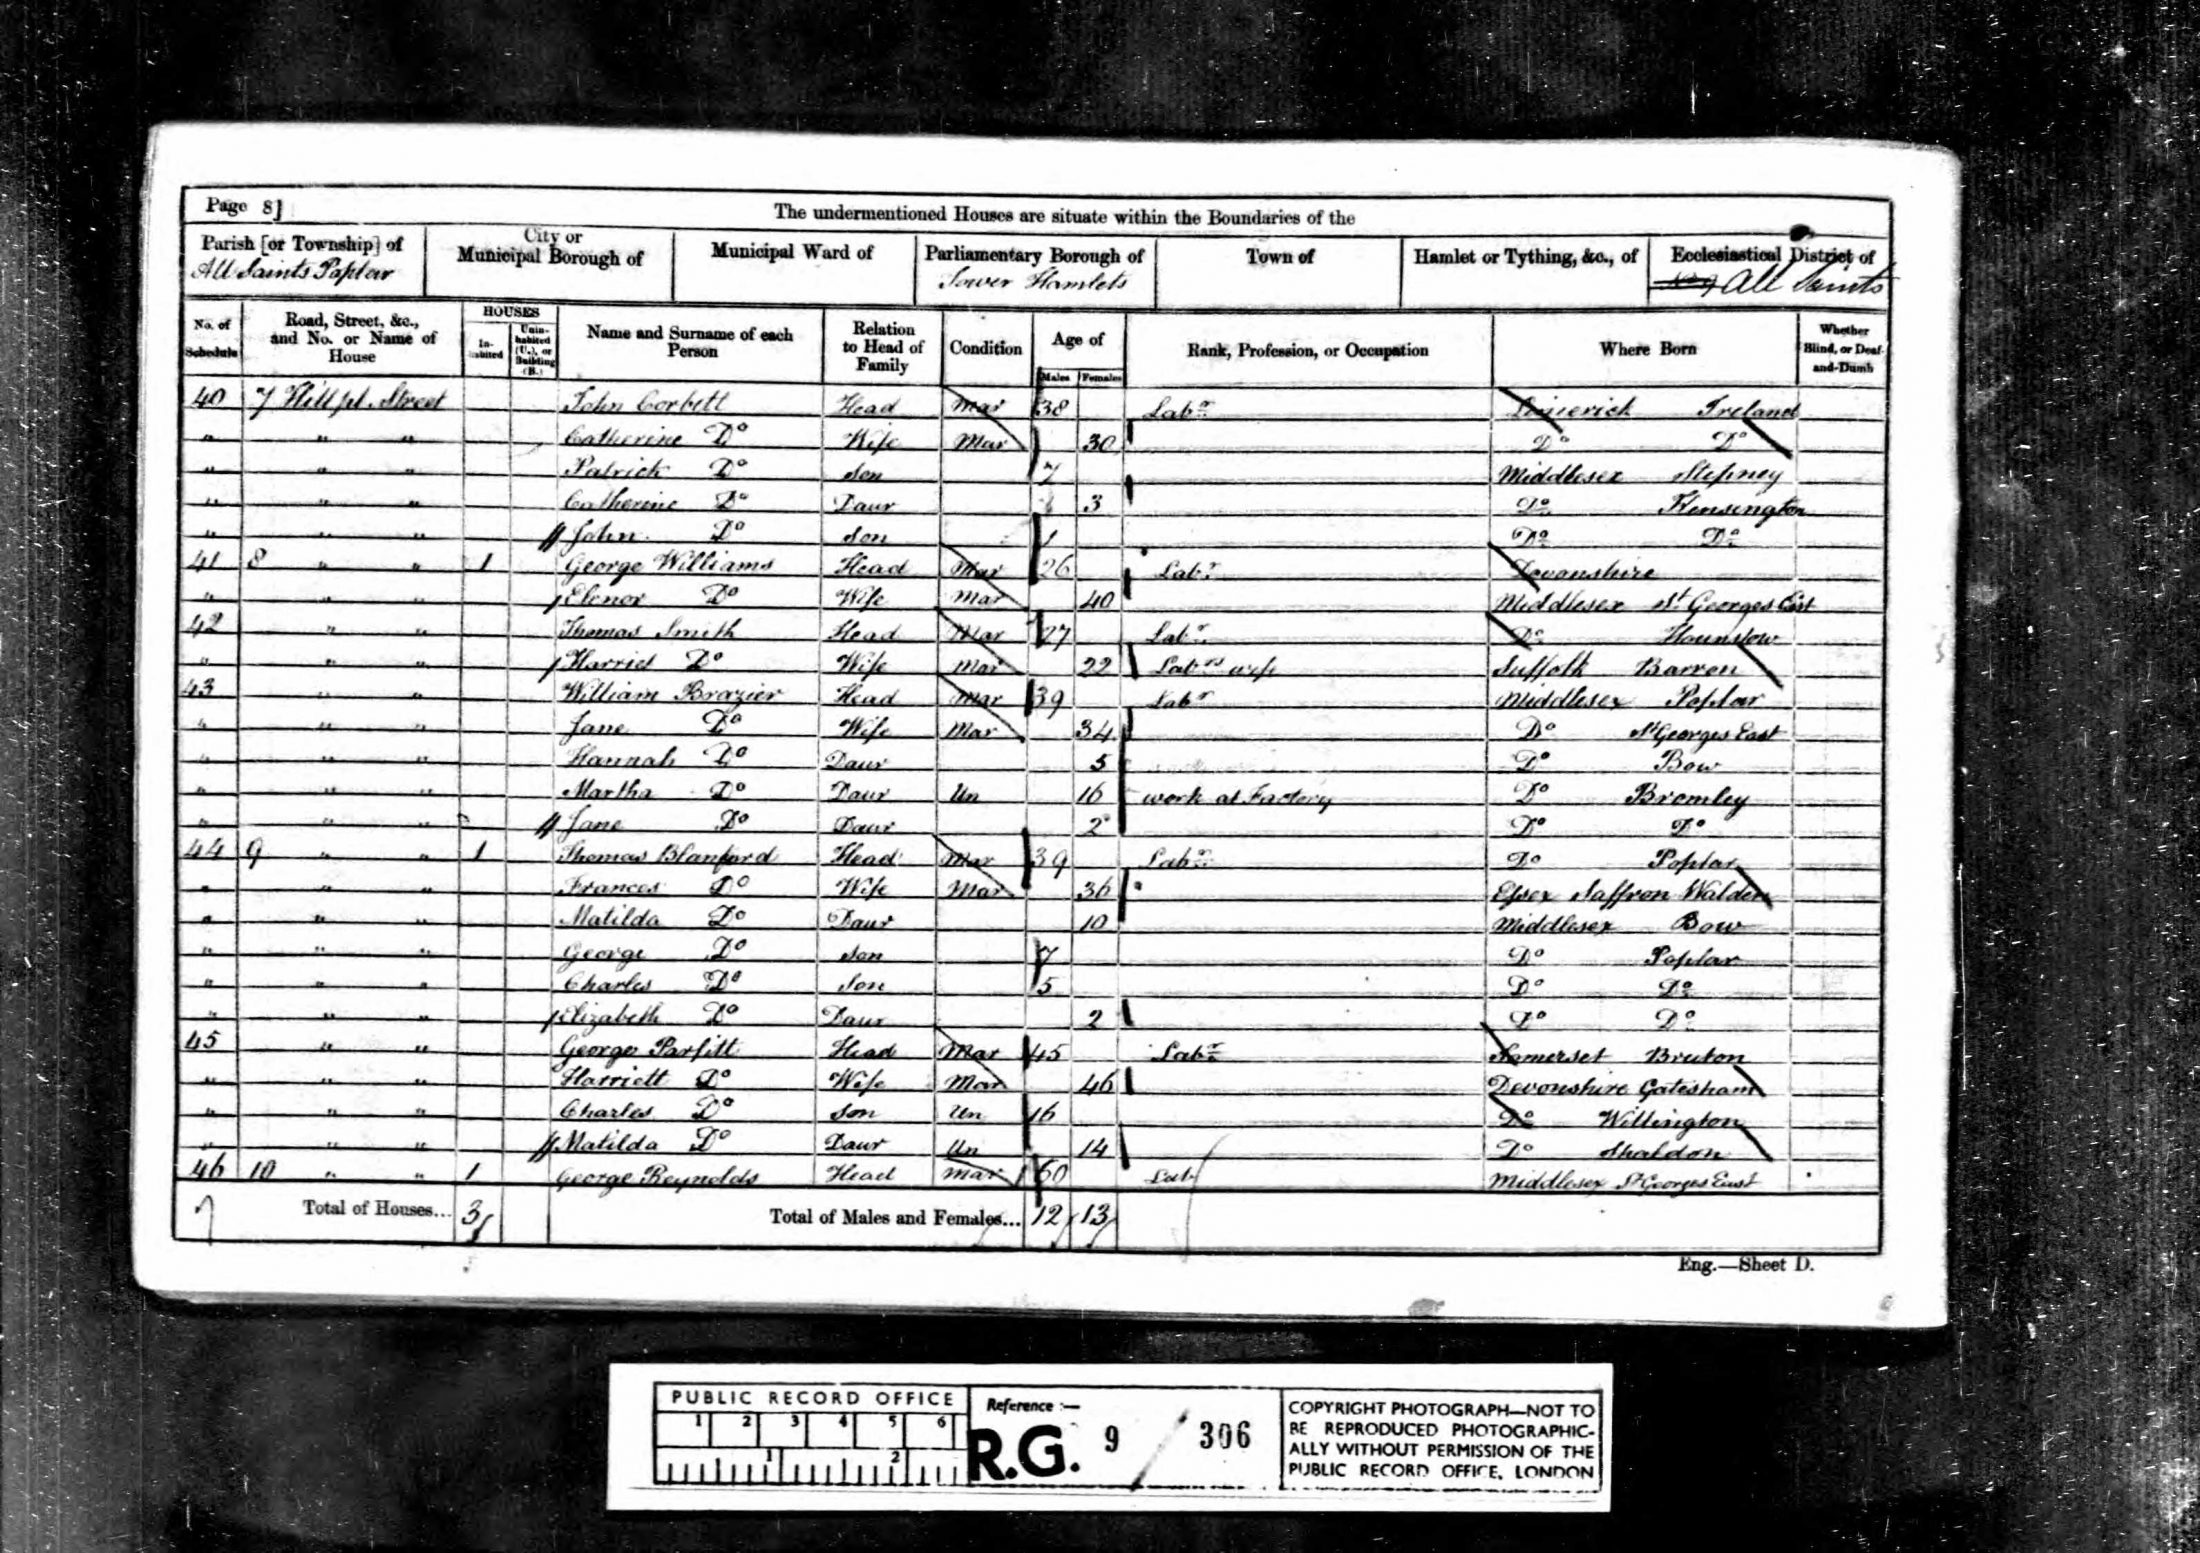 Page 8]
The undermentioned Houses are situate within the Boundaries of the
Parish [or Township] of
All Saints Poplar
City or
Municipal Borough of
Municipal Ward of
Parliamentary Borough of
Tower Hamlets
Town of
Hamlet or Tything, &c., of
Ecclesiastical District of
All Saints
No. of Schedule
Road, Street, &c., and No. or Name of House
HOUSES
In-habited
Unin-habited (U.), or Building (B.)
Name and Surname of each Person
Relation to Head of Family
Condition
Age of
Males Females
Rank, Profession, or Occupation
Where Born
Whether Blind, or Deaf-and-Dumb
40 7 Hill pl. Street John Corbett Head Mar 38 Labr Limerick Ireland
" " " Catherine Do Wife Mar 30 Do Do
" " " Patrick Do Son 7 Middlesex Stepney
" " " Catherine Do Daur 3 Do Kensington
" " " // John Do Son 1 Do Do
41 8 " " 1 George Williams Head Mar 26 Labr Devonshire
" " " / Elenor Do Wife Mar 40 Middlesex St Georges East
42 " " Thomas Smith Head Mar 27 Labr Do Hounslow
" " " / Harriet Do Wife Mar 22 Labrs wife Suffolk Barren
43 " " William Brazier Head Mar 39 Labr Middlesex Poplar
" " " Jane Do Wife Mar 34 Do St Georges East
" " " Hannah Do Daur 5 Do Bow
" " " Martha Do Daur Un 16 work at Factory Do Bromley
" " " // Jane Do Daur 2 Do Do
44 9 " " 1 Thomas Blanford Head Mar 39 Labr Do Poplar
" " " Frances Do Wife Mar 36 Essex Saffron Walden
" " " Matilda Do Daur 10 Middlesex Bow
" " " George Do Son 7 Do Poplar
" " " Charles Do Son 5 Do Do
" " " / Elizabeth Do Daur 2 Do Do
45 " " George Parfitt Head Mar 45 Labr Somerset Bruton
" " " Harriett Do Wife Mar 46 Devonshire Gatesham
" " " Charles Do Son Un 16 Do Willington
" " " // Matilda Do Daur Un 14 Do Shaldon
46 10 " " 1 George Reynolds Head Mar 60 Lab Middlesex St Georges East
7 Total of Houses... 3 Total of Males and Females... 12 13
Eng.—Sheet D.
PUBLIC RECORD OFFICE
1 2 3 4 5 6
1 2
Reference :—
R.G. 9 / 306
COPYRIGHT PHOTOGRAPH—NOT TO
BE REPRODUCED PHOTOGRAPHIC-
ALLY WITHOUT PERMISSION OF THE
PUBLIC RECORD OFFICE, LONDON